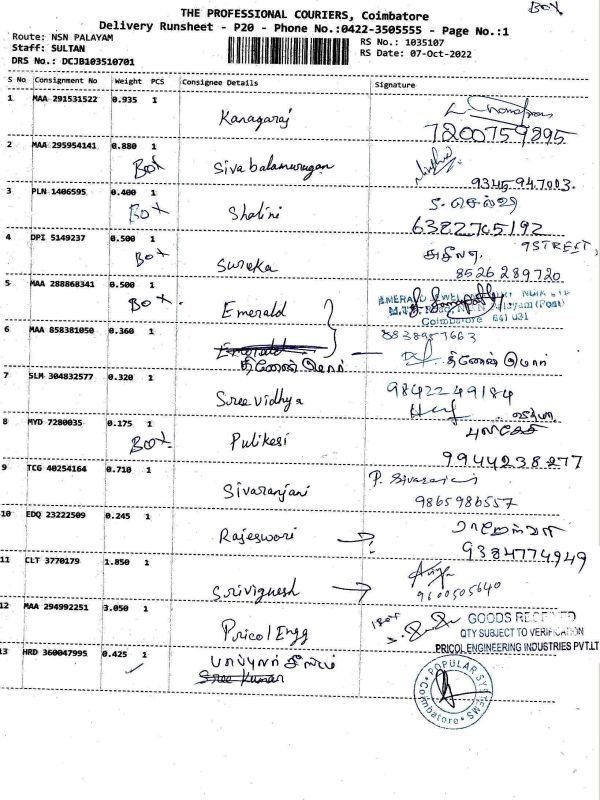 Box
THE PROFESSIONAL COURIERS, Coimbatore
Delivery Runsheet - P20 - Phone No.:0422-3505555 - Page No.:1
Route: NSN PALAYAM
Staff: SULTAN
DRS No.: DCJB103510701
RS No.: 1035107
RS Date: 07-Oct-2022
S No Consignment No Weight PCS Consignee Details Signature
1 MAA 291531522 0.935 1
Kanagaraj
7200759895
2 MAA 295954141 0.880 1
Box Sivabalamurugan
9345947003.
3 PLN 1406595 0.400 1
Box Shalini
6382705192
4 DPI 5149237 0.500 1
Box Sureka
7STREET,
8526289720
5 MAA 288868341 0.500 1
Box. Emerald
Coimbatore 641 031
6 MAA 858381050 0.360 1
8838957663
Emerald
7 SLM 304832577 0.320 1
Sreevidhya
9842249184
8 MYD 7280035 0.175 1
Box Pulikesi
புலிகேசி
9944238277
9 TCG 40254164 0.710 1
Sivaranjani
P. Sivaranjani
9865986557
10 EDQ 23222509 0.245 1
Rajeswari
9384774949
11 CLT 3770179 1.850 1
Srivignesh
9600505640
12 MAA 294992251 3.050 1
Pricol Engg
1 Box
GOODS RECEIVED
QTY SUBJECT TO VERIFICATION
PRICOL ENGINEERING INDUSTRIES PVT.LT
13 HRD 360047995 0.425 1
Sree Kumar
POPULAR SYSTEMS
Coimbatore